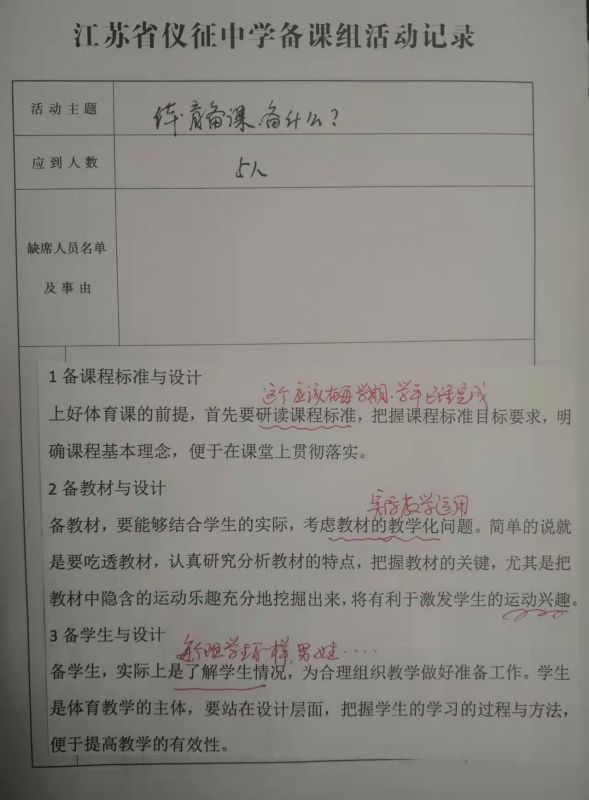 江苏省仪征中学备课组活动记录
活动主题
体育备课、备什么？
应到人数
5人
缺席人员名单
及事由
1 备课程标准与设计
这个应该在每学期、学年已经完成
上好体育课的前提，首先要研读课程标准，把握课程标准目标要求，明
确课程基本理念，便于在课堂上贯彻落实。
2 备教材与设计
实际教学运用
备教材，要能够结合学生的实际，考虑教材的教学化问题。简单的说就
是要吃透教材，认真研究分析教材的特点，把握教材的关键，尤其是把
教材中隐含的运动乐趣充分地挖掘出来，将有利于激发学生的运动兴趣。
3 备学生与设计
每个班学生不一样，男、女……
备学生，实际上是了解学生情况，为合理组织教学做好准备工作。学生
是体育教学的主体，要站在设计层面，把握学生的学习的过程与方法，
便于提高教学的有效性。